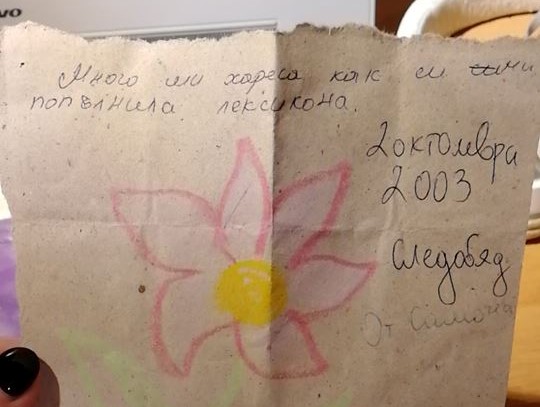 Много ми хареса как си ми
попълнила лексикона.
2 октомври
2003
Следобяд
От Симона
vo